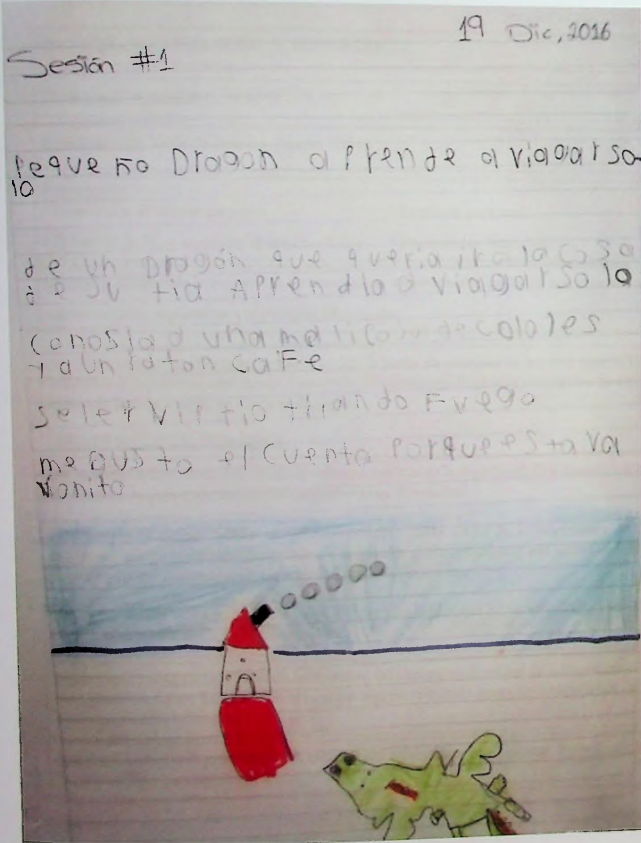 19 Dic, 2016
Sesión #1
Pequeño Dragon aprende a viagar so
lo
de un Dragón que queria ir a la casa
de su tia Aprendio a viagar solo
conosio a una de colores
y a un raton cafe
tirando Fuego
me Gusto el cuento Porque estava
Vonito